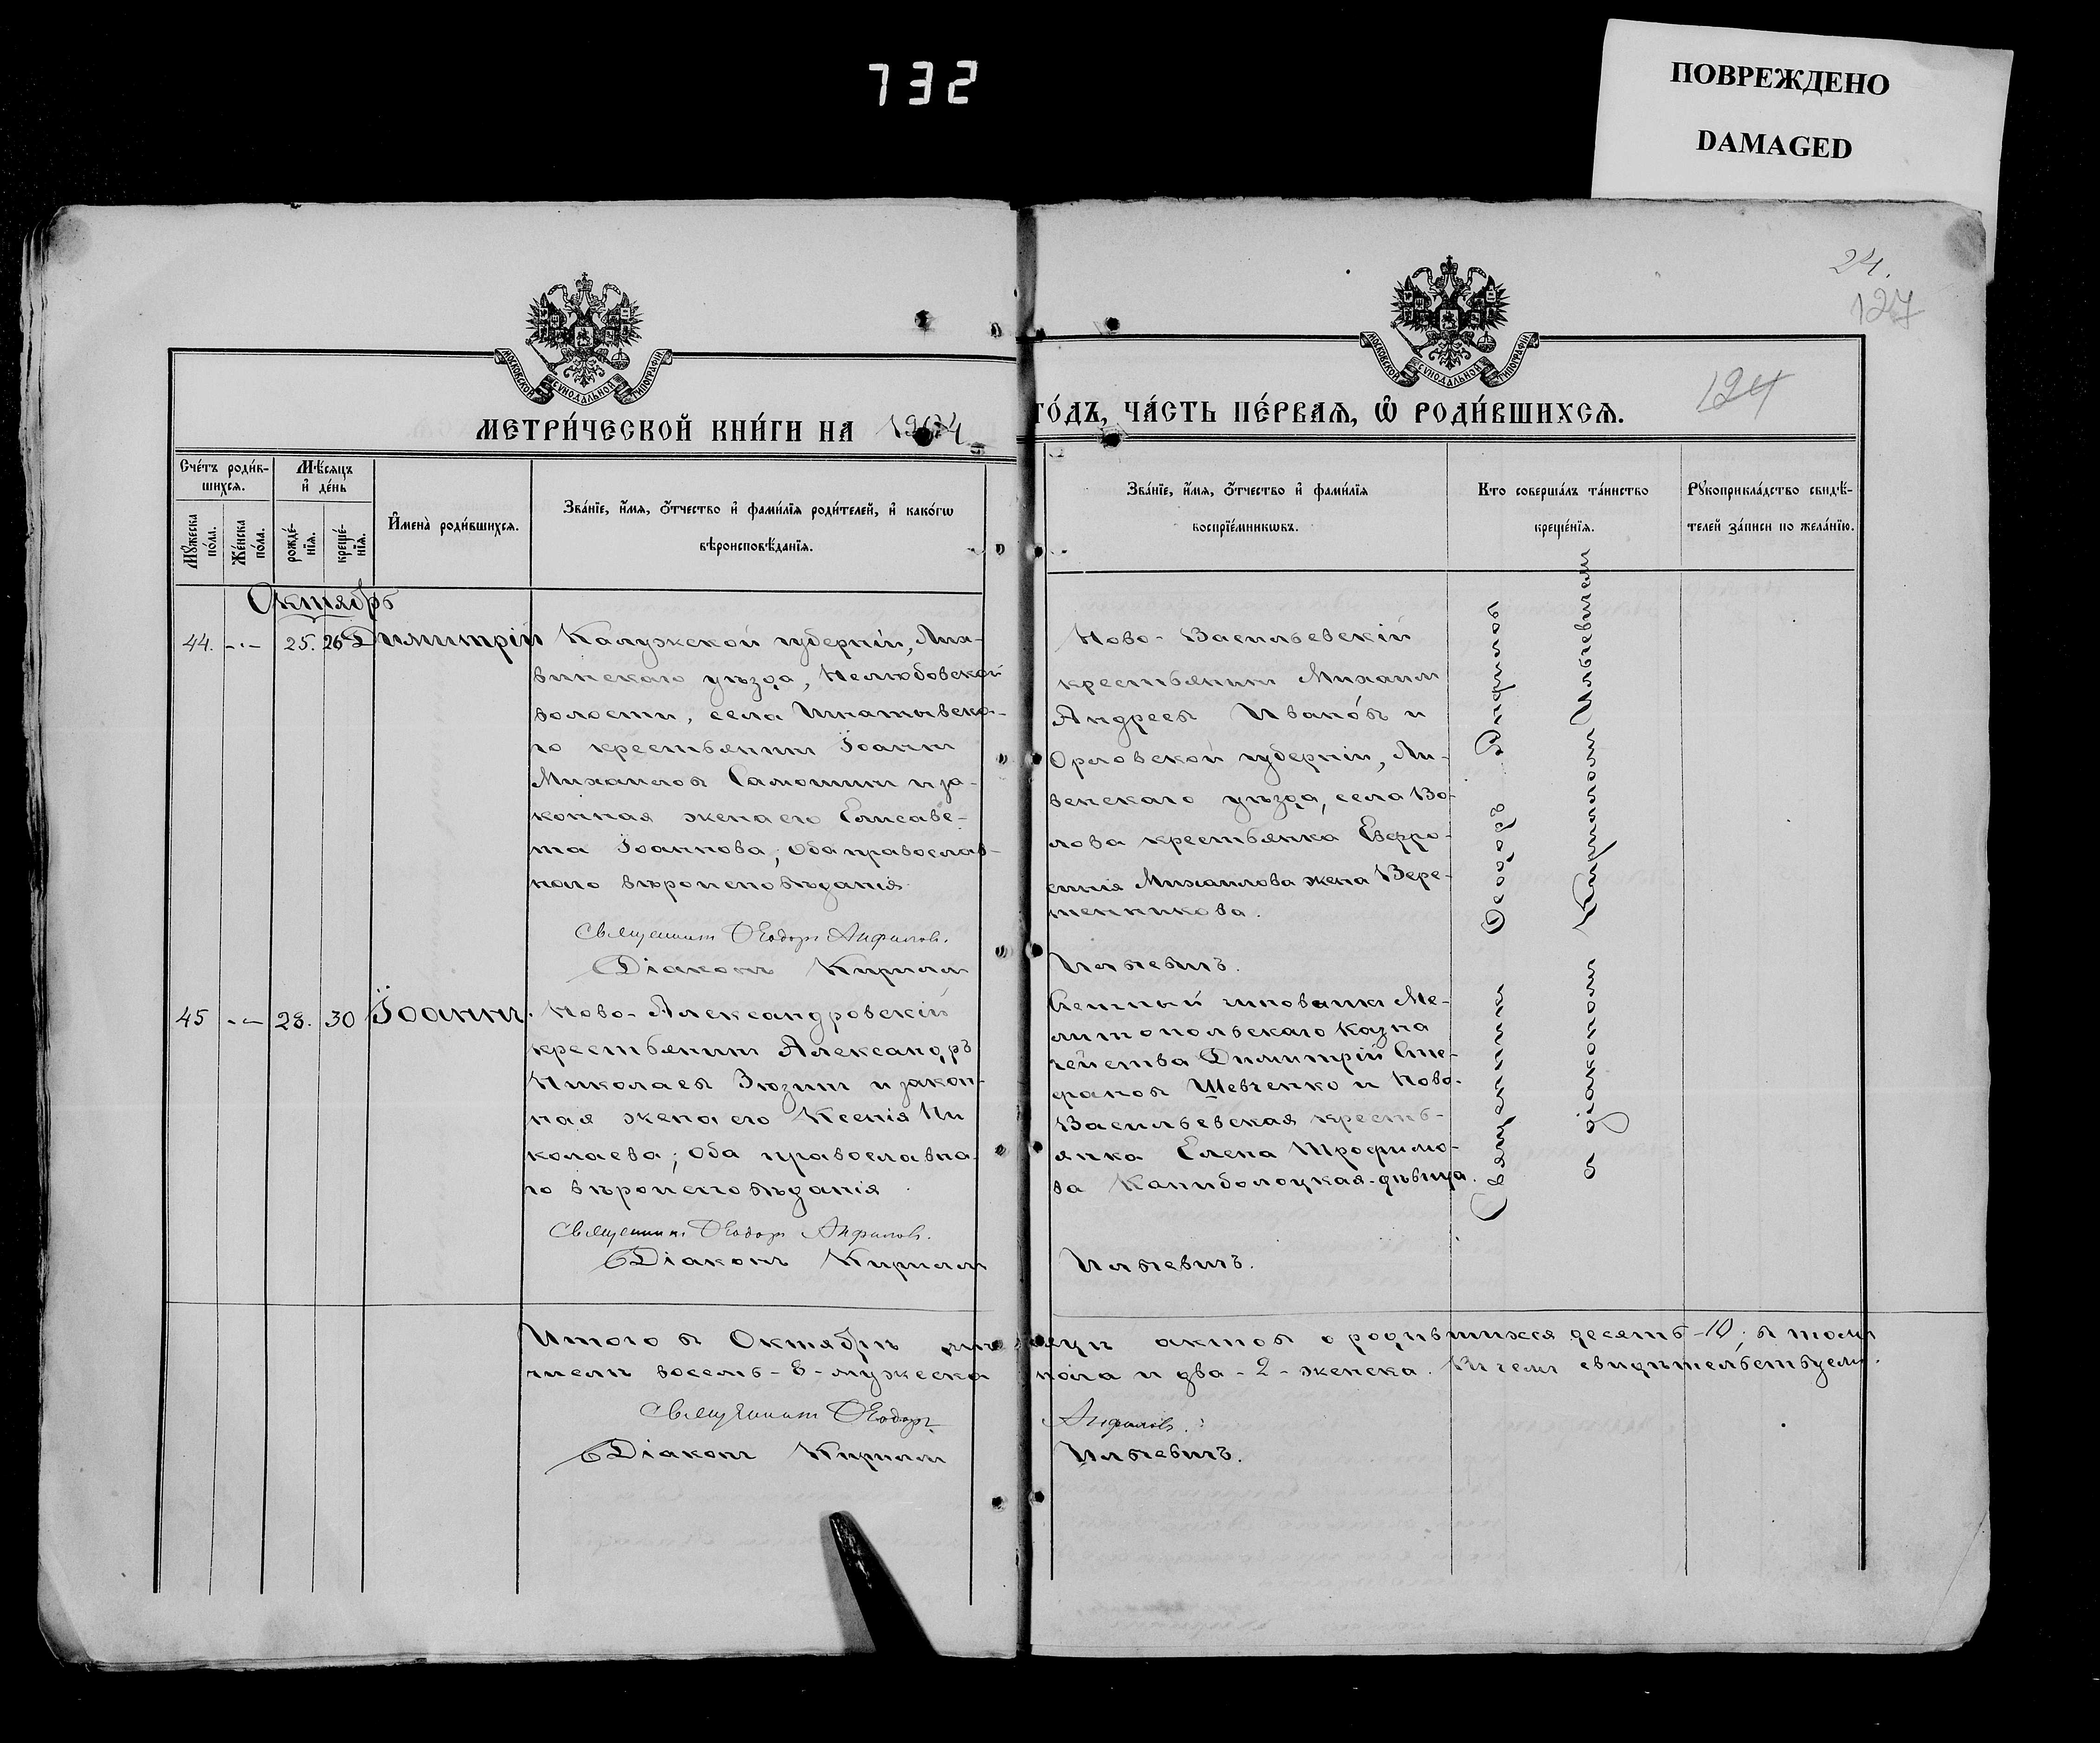 732
ПОВРЕЖДЕНО
DAMAGED
24.
127
124
МОСКОВСКОЙ СѴНОДАЛЬНОЙ ТИПОГРАФІИ
МОСКОВСКОЙ СѴНОДАЛЬНОЙ ТИПОГРАФІИ
МЕТРИ́ЧЕСКОЙ КНИ́ГИ НА 1904
ГО́ДЪ, ЧА́СТЬ ПЕ́РВАѦ, Ѿ РОДИ́ВШИХСѦ.
Сче́тъ роди́в-
шихсѧ.
Мѣ́сѧцъ
и҆ де́нь
Мꙋ́жеска
по́ла.
Же́нска
по́ла.
рожде́-
нїѧ.
креще́-
нїѧ.
И҆мена̀ роди́вшихсѧ.
Зва́нїе, и҆́мѧ, ѻ҆́тчество и҆ фами́лїѧ роди́телей, и҆ како́гѡ
вѣроисповѣ́данїѧ.
Зва́нїе, и҆́мѧ, ѻ҆́тчество и҆ фами́лїѧ
воспрїе́мникѡвъ.
Кто соверша́лъ та́инство
креще́нїѧ.
Рꙋкоприкла́дство свидѣ́-
телей за́писи по жела́нїю.
Октябрь
44. -·- 25. 26 Димитрій
Калужской губерніи, Лих-
винскаго уѣзда, Нелюбовской
волости, села Игнатьевска-
го крестьянинъ Іоаннъ
Михаиловъ Самошинъ и за-
конная жена его Елисаве-
та Іоаннова; оба православ-
наго вѣроисповѣданія.
Священникъ Ѳеодоръ Анфиловъ.
Діаконъ Кириллъ
Ново-Васильевскій
крестьянинъ Михаилъ
Андреевъ Ивановъ и
Орловской губерніи, Ли-
венскаго уѣзда, села Во-
лова крестьянка Евфро-
синія Михаилова жена Вере-
тенникова.
Ильяевичъ.
45 -·- 28. 30 Іоаннъ.
Ново-Александровскій
крестьянинъ Александръ
Николаевъ Зюзинъ и закон-
ная жена его Ксенія Ни
колаева; оба православна-
го вѣроисповѣданія.
Священникъ Ѳеодоръ Анфиловъ.
Діаконъ Кириллъ
чиновникъ Ме-
литопольскаго Казна
чейства Димитрій Сте-
фановъ Шевченко и Ново-
Васильевская кресть-
янка Елена Трофимо-
ва Капиболоцкая-дѣвица.
Ильяевичъ.
Священникъ Ѳеодоръ Анфиловъ
съ діакономъ Кирилломъ Ильяевичемъ
Итого въ Октябрѣ мѣсяцѣ актовъ о родившихся десять-10; въ томъ
числѣ восемь-8-мужеска пола и два-2-женска. Въ чемъ свидѣтельствуемъ.
Священникъ Ѳеодоръ Анфиловъ.
Діаконъ Кириллъ Ильяевичъ.